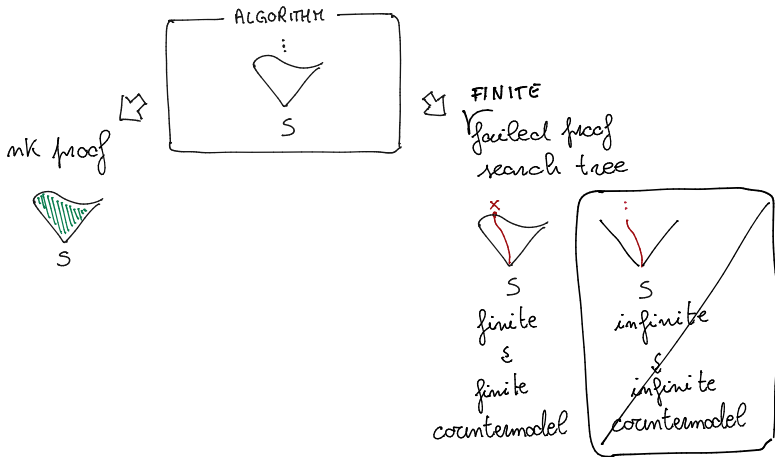 ALGORITHM
⋮
S
nK proof
S
FINITE
failed proof
search tree
x
S
finite
&
finite
countermodel
⋮
S
infinite
&
infinite
countermodel